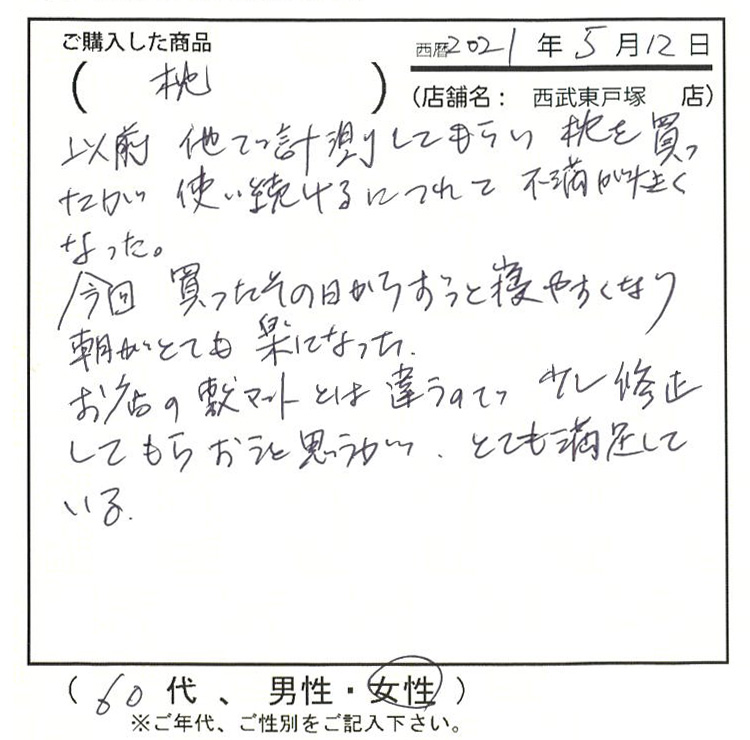 ご購入した商品
西暦2021年5月12日
(枕)
(店舗名: 西武東戸塚 店)
以前 他で計測してもらい 枕を買っ
たが 使い続けるにつれて 不満が大きく
なった。
今回 買ったその日からずっと寝やすくなり
朝がとても楽になった.
お店の敷マットとは違うので 少し修正
してもらおうと思うが、とても満足して
いる.
(60代、男性・女性)
※ご年代、ご性別をご記入下さい。